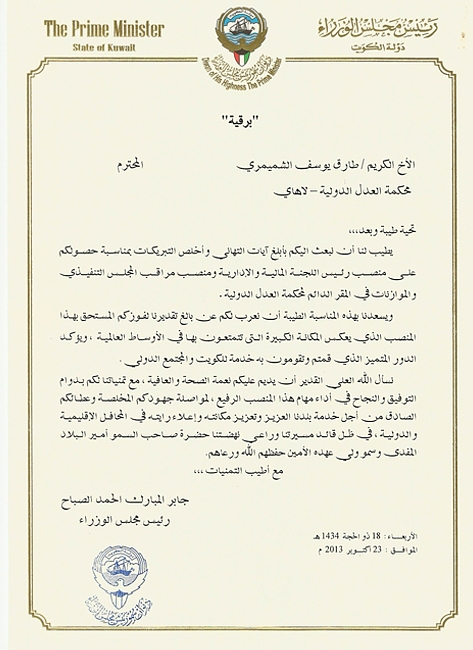 The Prime Minister
State of Kuwait
رئيس مجلس الوزراء
دولة الكويت
Diwan of His Highness The Prime Minister
"برقية"
الأخ الكريم / طارق يوسف الشميمري المحترم
محكمة العدل الدولية – لاهاي
تحية طيبة وبعد،،،
يطيب لنا أن نبعث اليكم بأبلغ آيات التهاني وأخلص التبريكات بمناسبة حصولكم
على منصب رئيس اللجنة المالية والإدارية ومنصب مراقب المجلس التنفيذي
والموازنات في المقر الدائم لمحكمة العدل الدولية .
ويسعدنا بهذه المناسبة الطيبة أن نعرب لكم عن بالغ تقديرنا لفوزكم المستحق بهذا
المنصب الذي يعكس المكانة الكبيرة التي تتمتعون بها في الأوساط العالمية ، ويؤكد
الدور المتميز الذي قمتم وتقومون به خدمة للكويت والمجتمع الدولي .
نسأل الله العلي القدير أن يديم عليكم نعمة الصحة والعافية ، مع تمنياتنا لكم بدوام
التوفيق والنجاح في أداء مهام هذا المنصب الرفيع ، لمواصلة جهودكم المخلصة وعطائكم
الصادق من أجل خدمة بلدنا العزيز وتعزيز مكانته وإعلاء رايته في المحافل الإقليمية
والدولية ، في ظل قائد مسيرتنا وراعي نهضتنا حضرة صاحب السمو أمير البلاد
المفدى وسمو ولي عهده الأمين حفظهم الله ورعاهم.
مع أطيب التمنيات ،،،
جابر المبارك الحمد الصباح
رئيس مجلس الوزراء
الأربعاء : 18 ذو الحجة 1434 هـ
الموافق : 23 أكتوبر 2013 م